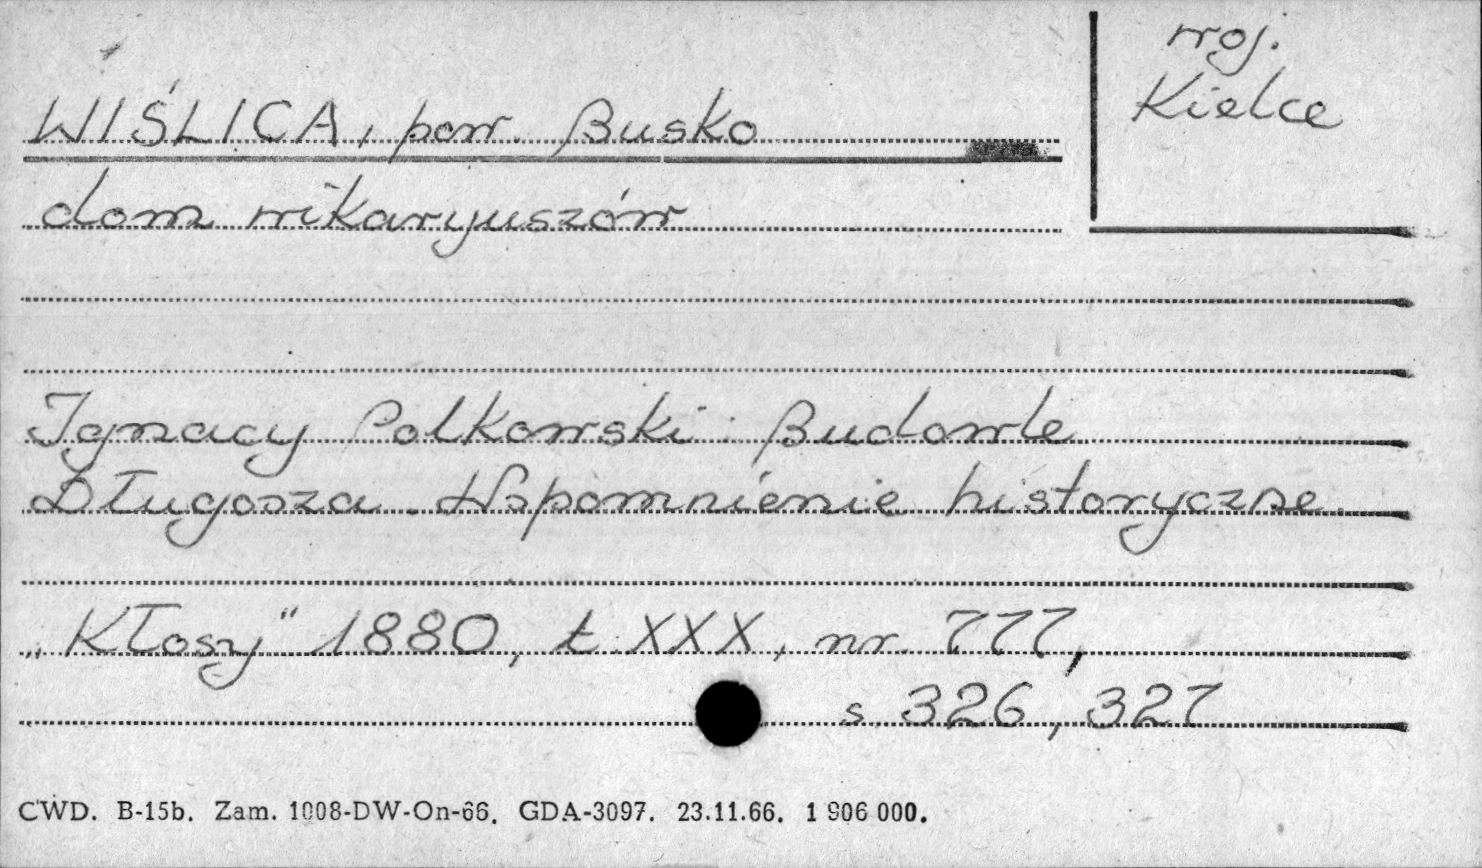 woj.
Kielce
WIŚLICA, pow. Busko
dom wikaryuszów
Ignacy Polkowski: Budowle
Długosza. Wspomnienie historyczne.
„Kłosy" 1880, t. XXX, nr. 777,
s. 326, 327
CWD. B-15b. Zam. 1008-DW-On-66. GDA-3097. 23.11.66. 1 906 000.